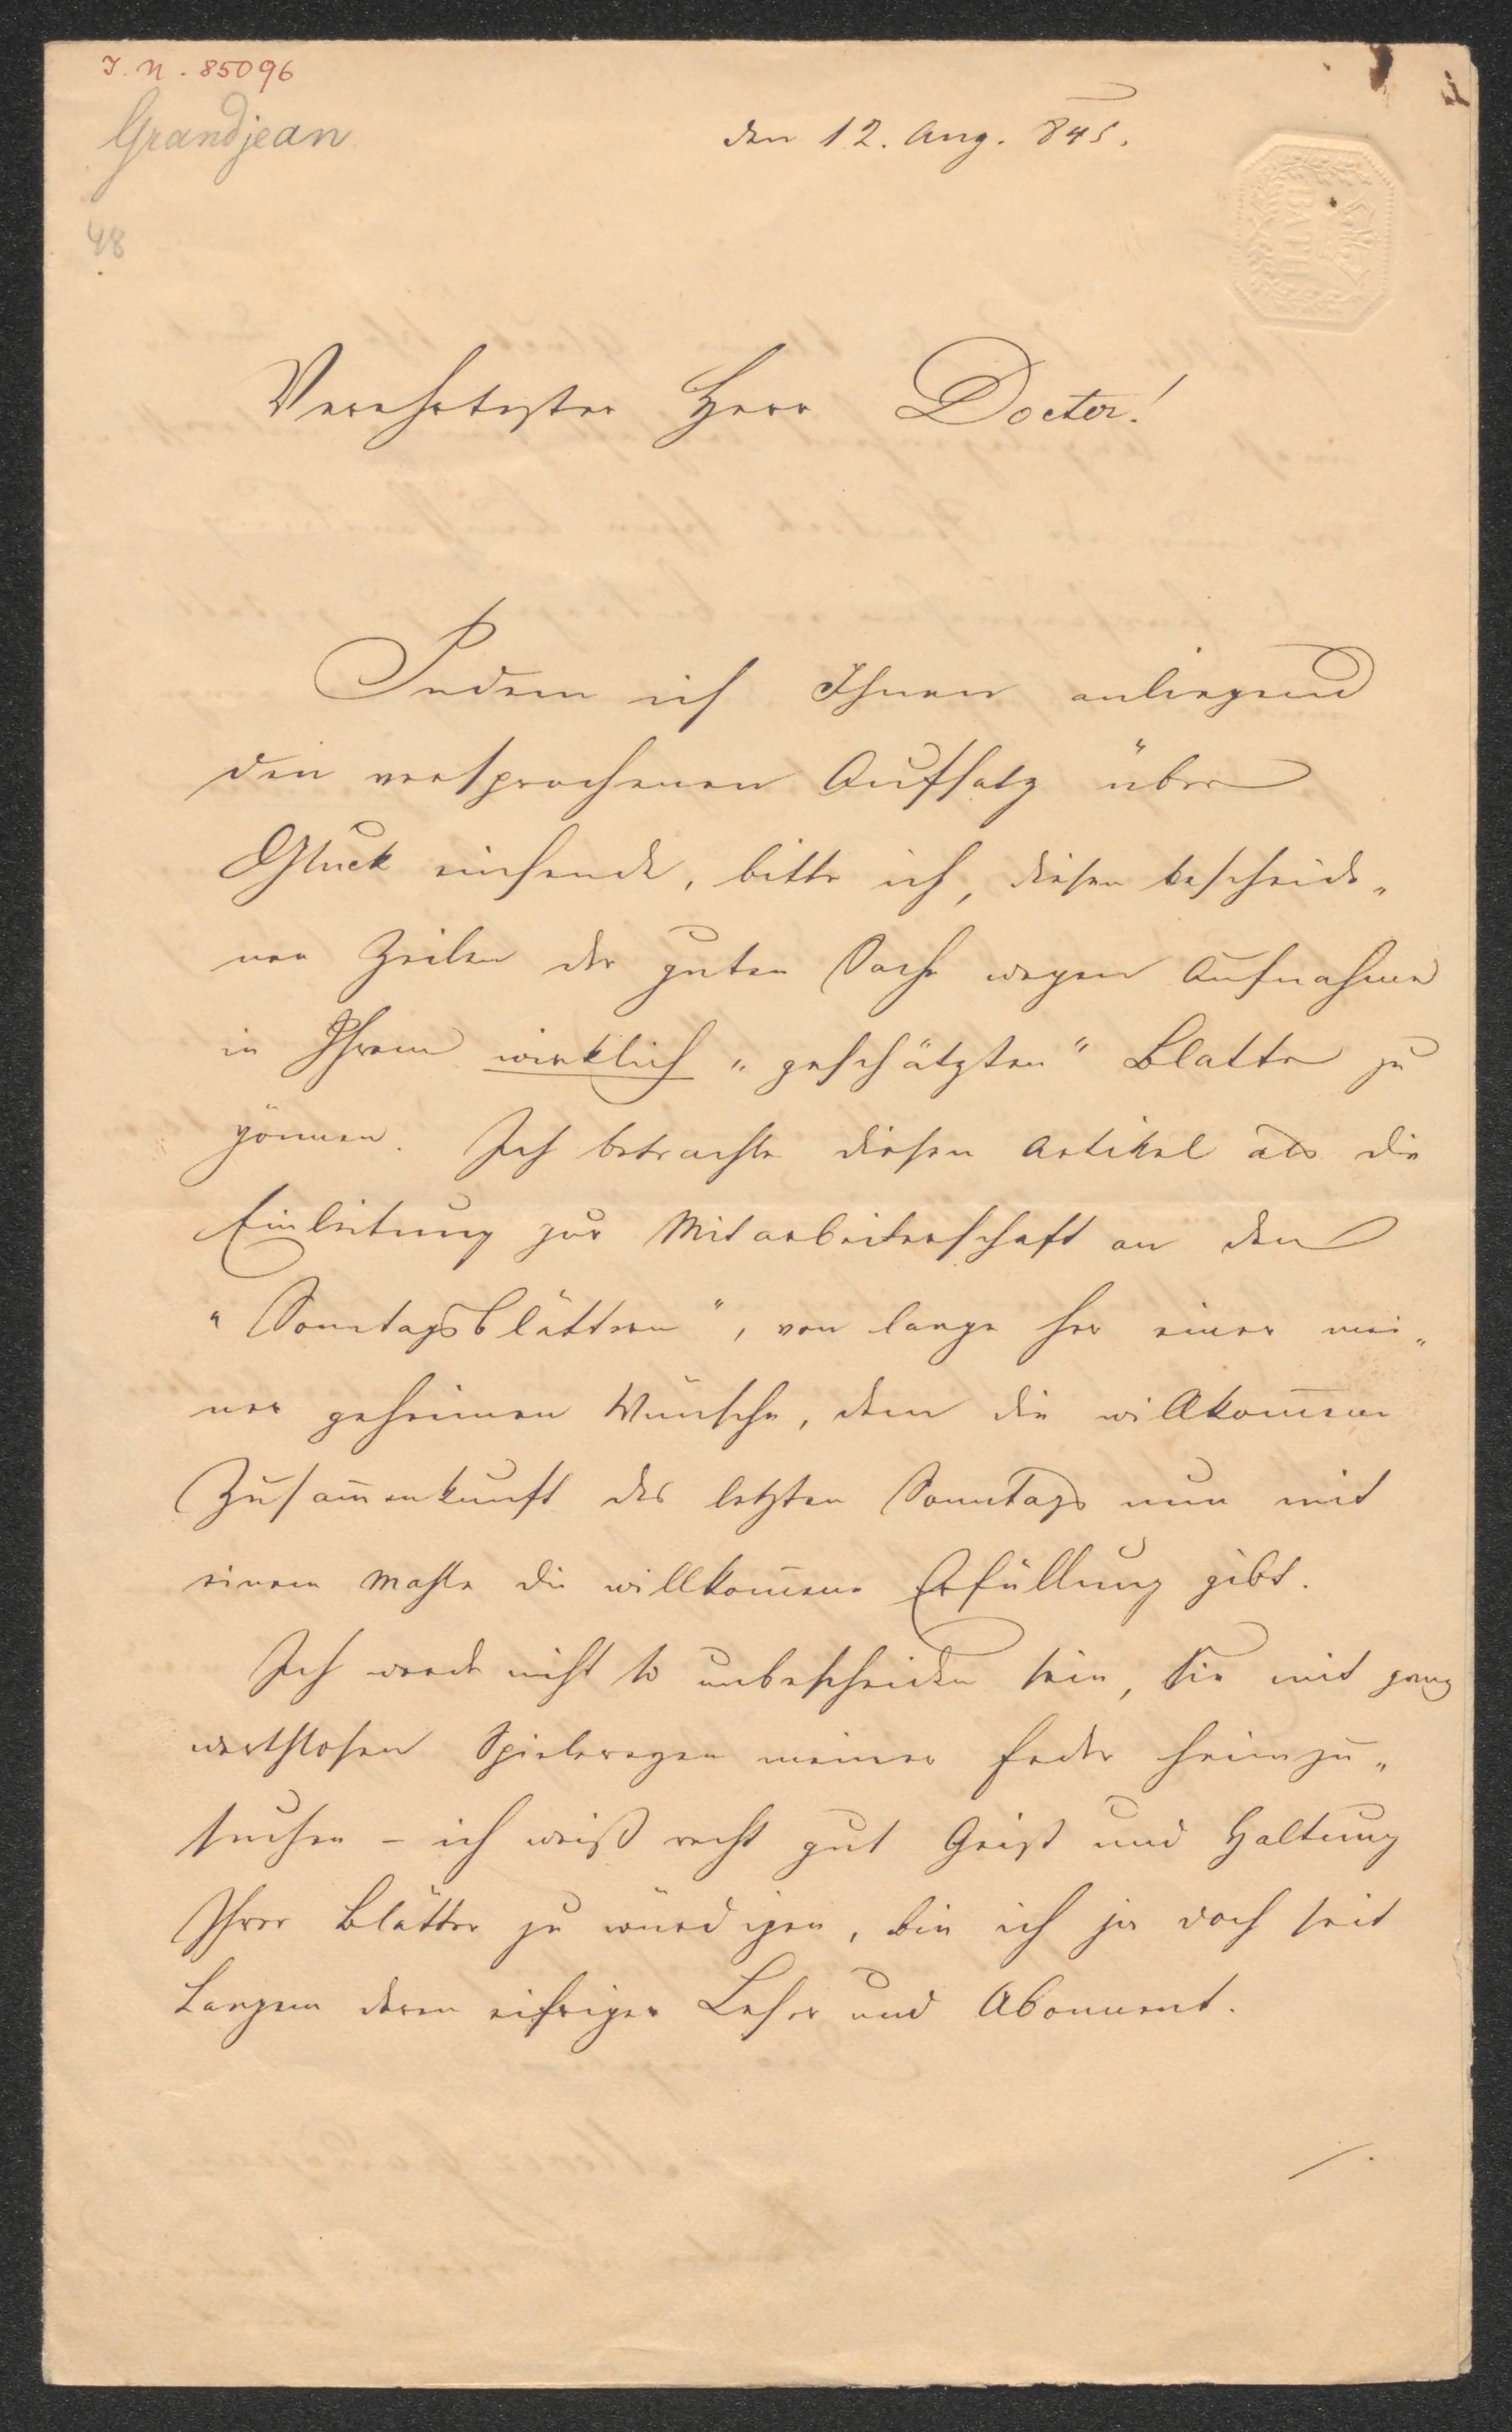 I. N. 85096
Grandjean
48
den 12. Aug. 845.
Verehrtester Herr Doctor!
Indem ich Ihnen anliegend
den versprochenen Aufsatz über
Gluck einsende, bitte ich, diesen bescheide„
nen Zeilen der guten Sache wegen Aufnahme
in Ihrem wirklich „geschätzten“ Blatte zu
gönnen. Ich betrachte diesen Artikel als die
Einleitung zur Mitarbeiterschaft an den
„Sonntagsblättern“, von lange her einer mei„
ner geheimen Wünsche, dem die willkom̅ene
Zusam̅enkunft des letzten Sonntags nun mit
einem Mahle die willkom̅ene Erfüllung gibt.
Ich werde nicht so unbescheiden sein, Sie mit ganz
werthlosen Spielereyen meiner Feder heimzu„
suchen – ich weiß recht gut Geist und Haltung
Ihrer Blätter zu würdigen, bin ich ja doch seit
Langem deren eifriger Leser und Abonnent.